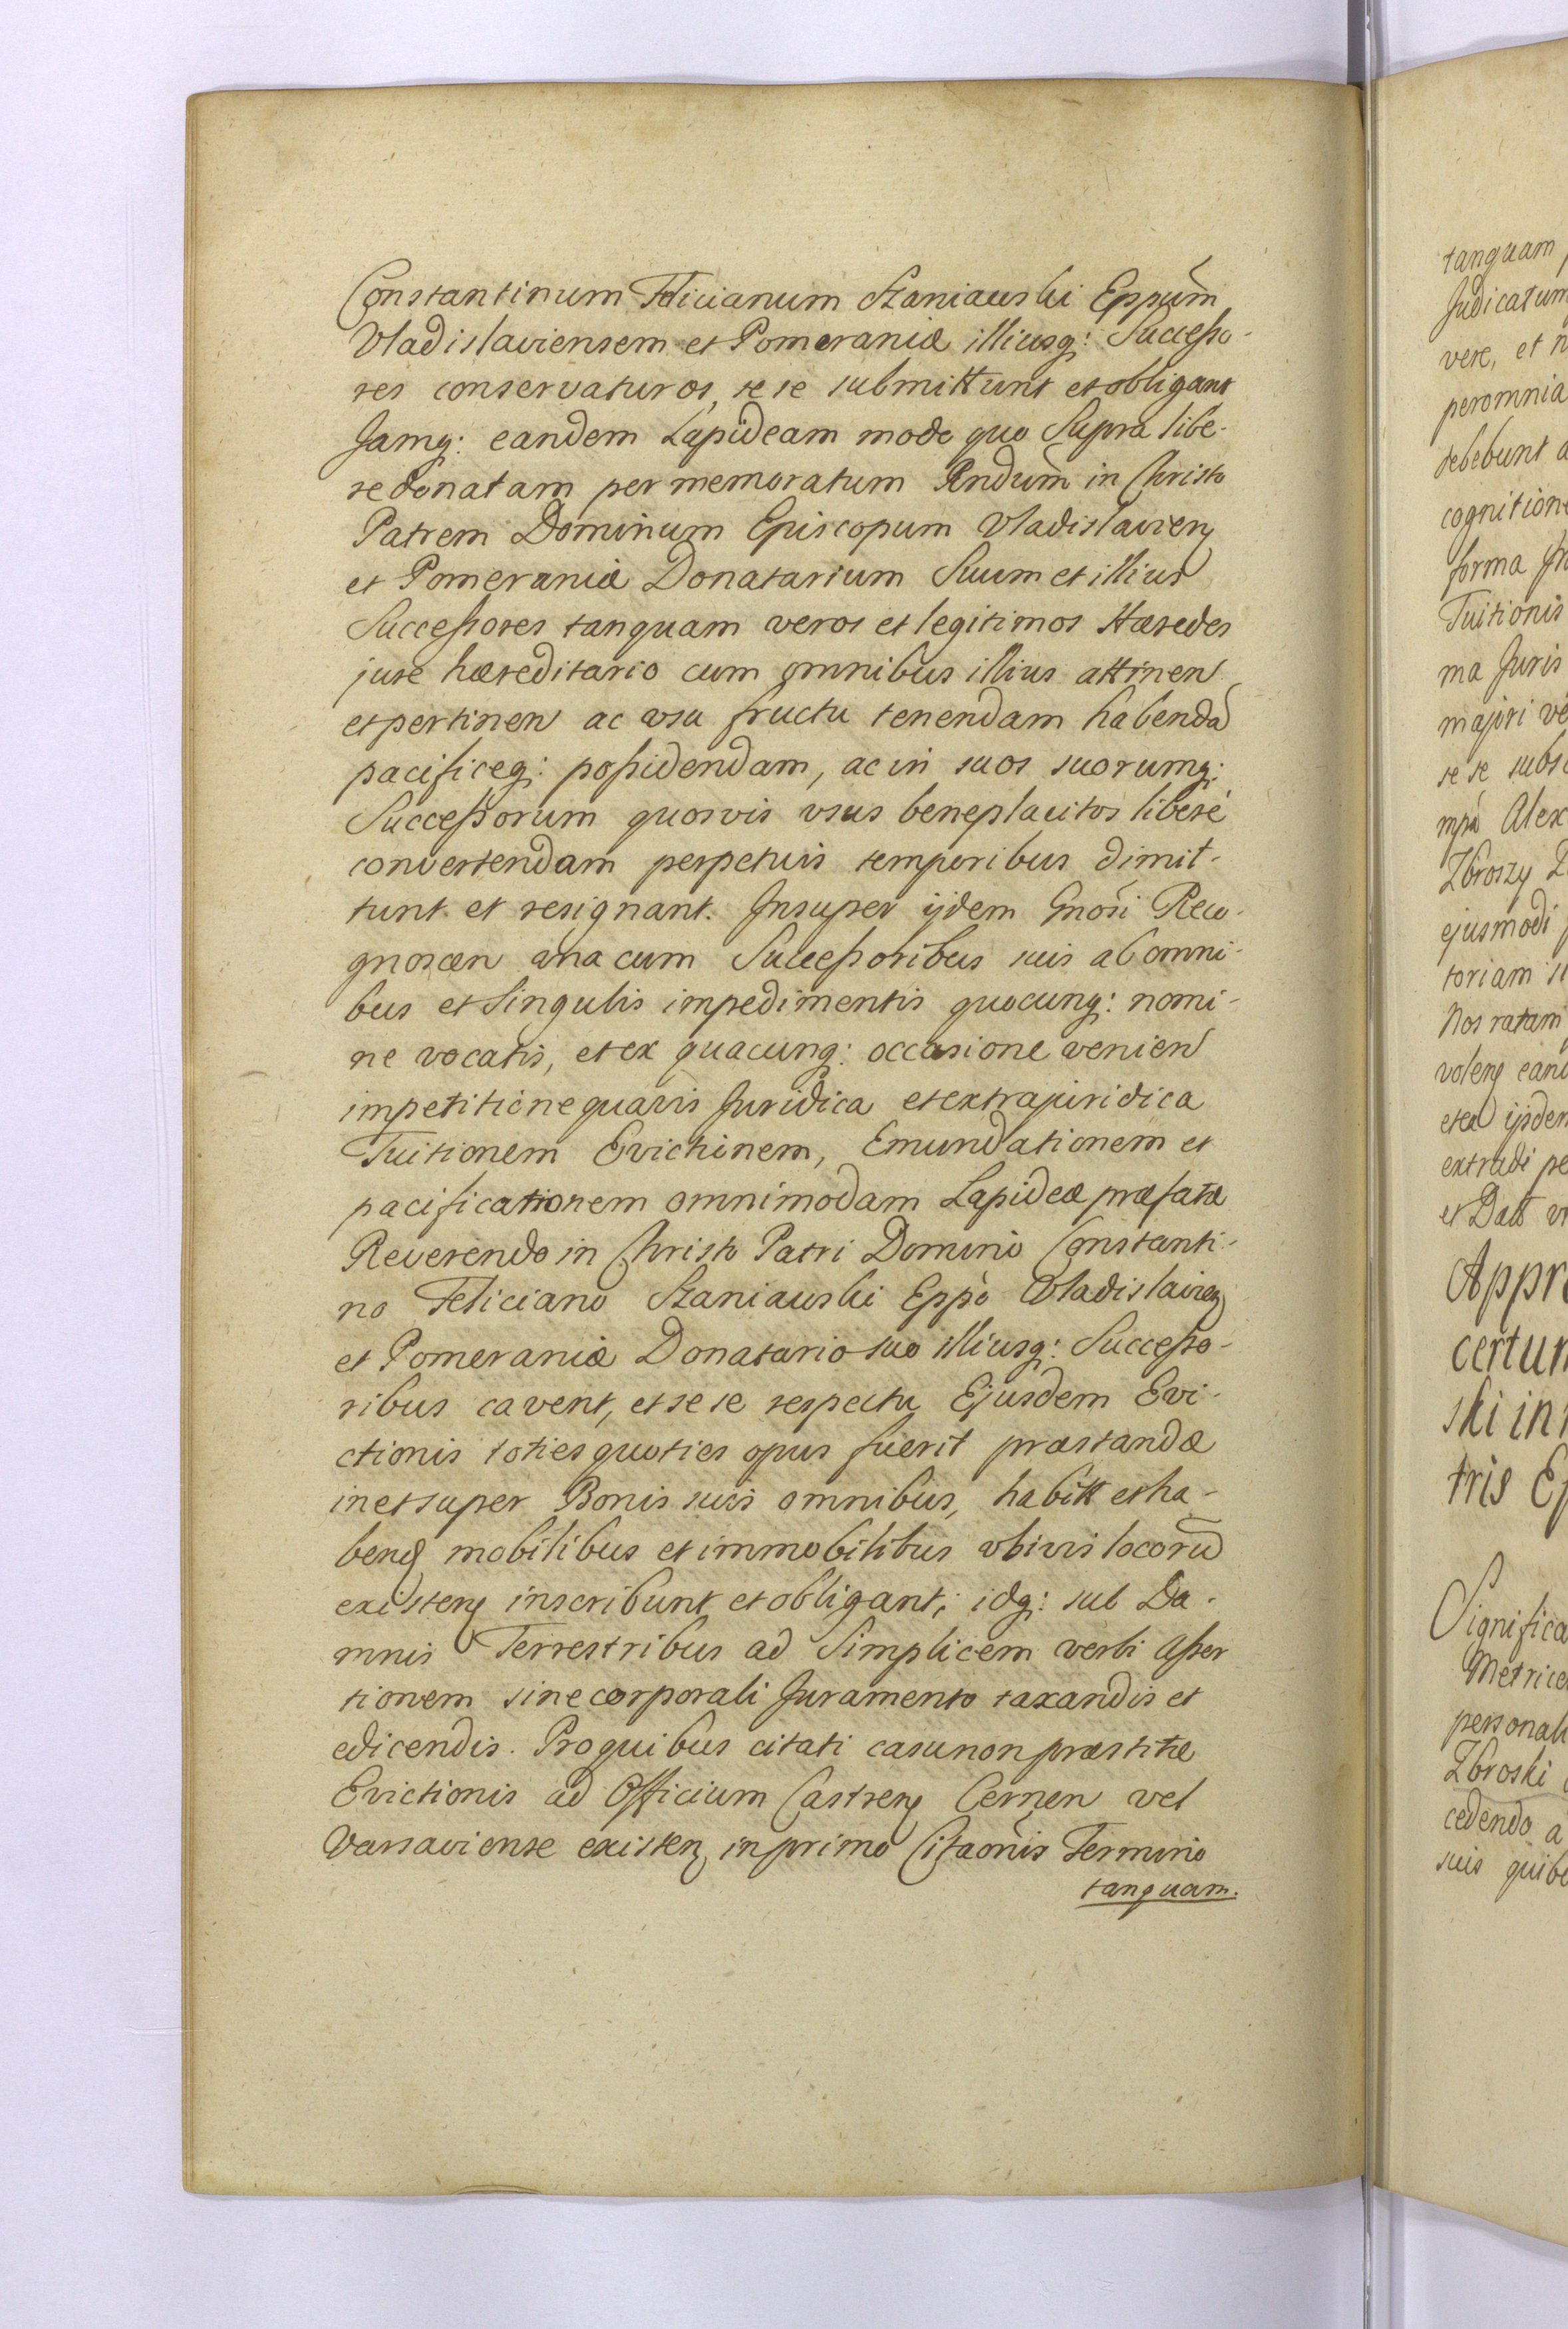 Constantinum Felicianum Szaniawski Eppũm
Vladislaviensem et Pomeraniæ illiusq: Successo-
res conservaturos, se se submittunt et obligant
Jamq: eandem Lapideam modo quo Supra libe-
re donatam per memoratum Rndũm in Christo
Patrem Dominum Episcopum Vladislavien
et Pomeraniæ Donatarium Suum et illius
Successores tanquam veros et legitimos Hæredes
jure hæreditario cum omnibus illius attinen
et pertinen ac usu fructu tenendam habendã
pacificeq: possidendam, ac in suos suorumq:
Successorum quosvis usus beneplacitos liberè
convertendam perpetuis temporibus dimit-
tunt et resignant. Insuper ijdem Gnosi Reco-
gnoscen una cum Successoribus suis ab omni-
bus et Singulis impedimentis quocunq: nomi-
ne vocatis, et ex quacunq: occasione venien
impetitione quavis Juridica et extrajuridica
Tuitionem Evictinem, Emundationem et
pacificationem omnimodam Lapideæ præfatæ
Reverendo in Christo Patri Domino Constanti-
no Feliciano Szaniawski Eppò Vladislavien
et Pomeraniæ Donatario suo illiusq: Successo-
ribus cavent, et se se respectu Ejusdem Evi-
ctionis toties quoties opus fuerit præstandæ
in et super Bonis suis omnibus, habitt et ha-
ben mobilibus et immobilibus ubivis locorũ
existen inscribunt et obligant; idq: sub Da-
mnis Terrestribus ad Simplicem verbi Asser
tionem sine corporali Juramento taxandis et
edicendis. Pro quibus citati casu non præstitæ
Evictionis ad Officium Castren Cernen vel
Varsaviense existen in primo Citaõnis Termino
tanquam.
tanquam
Judicatum
vere, et
peromnia
debebunt
cognition
forma
Tuitionis
ma Juris
majori
se se
Alex
Zbroszy
ejusmodi
toriam
Nos ratam
volen
ijdem
extradi
et
Appro
certum
ski in
tris
Significa
Metrice
personali
Zbroski
cedendo a
suis